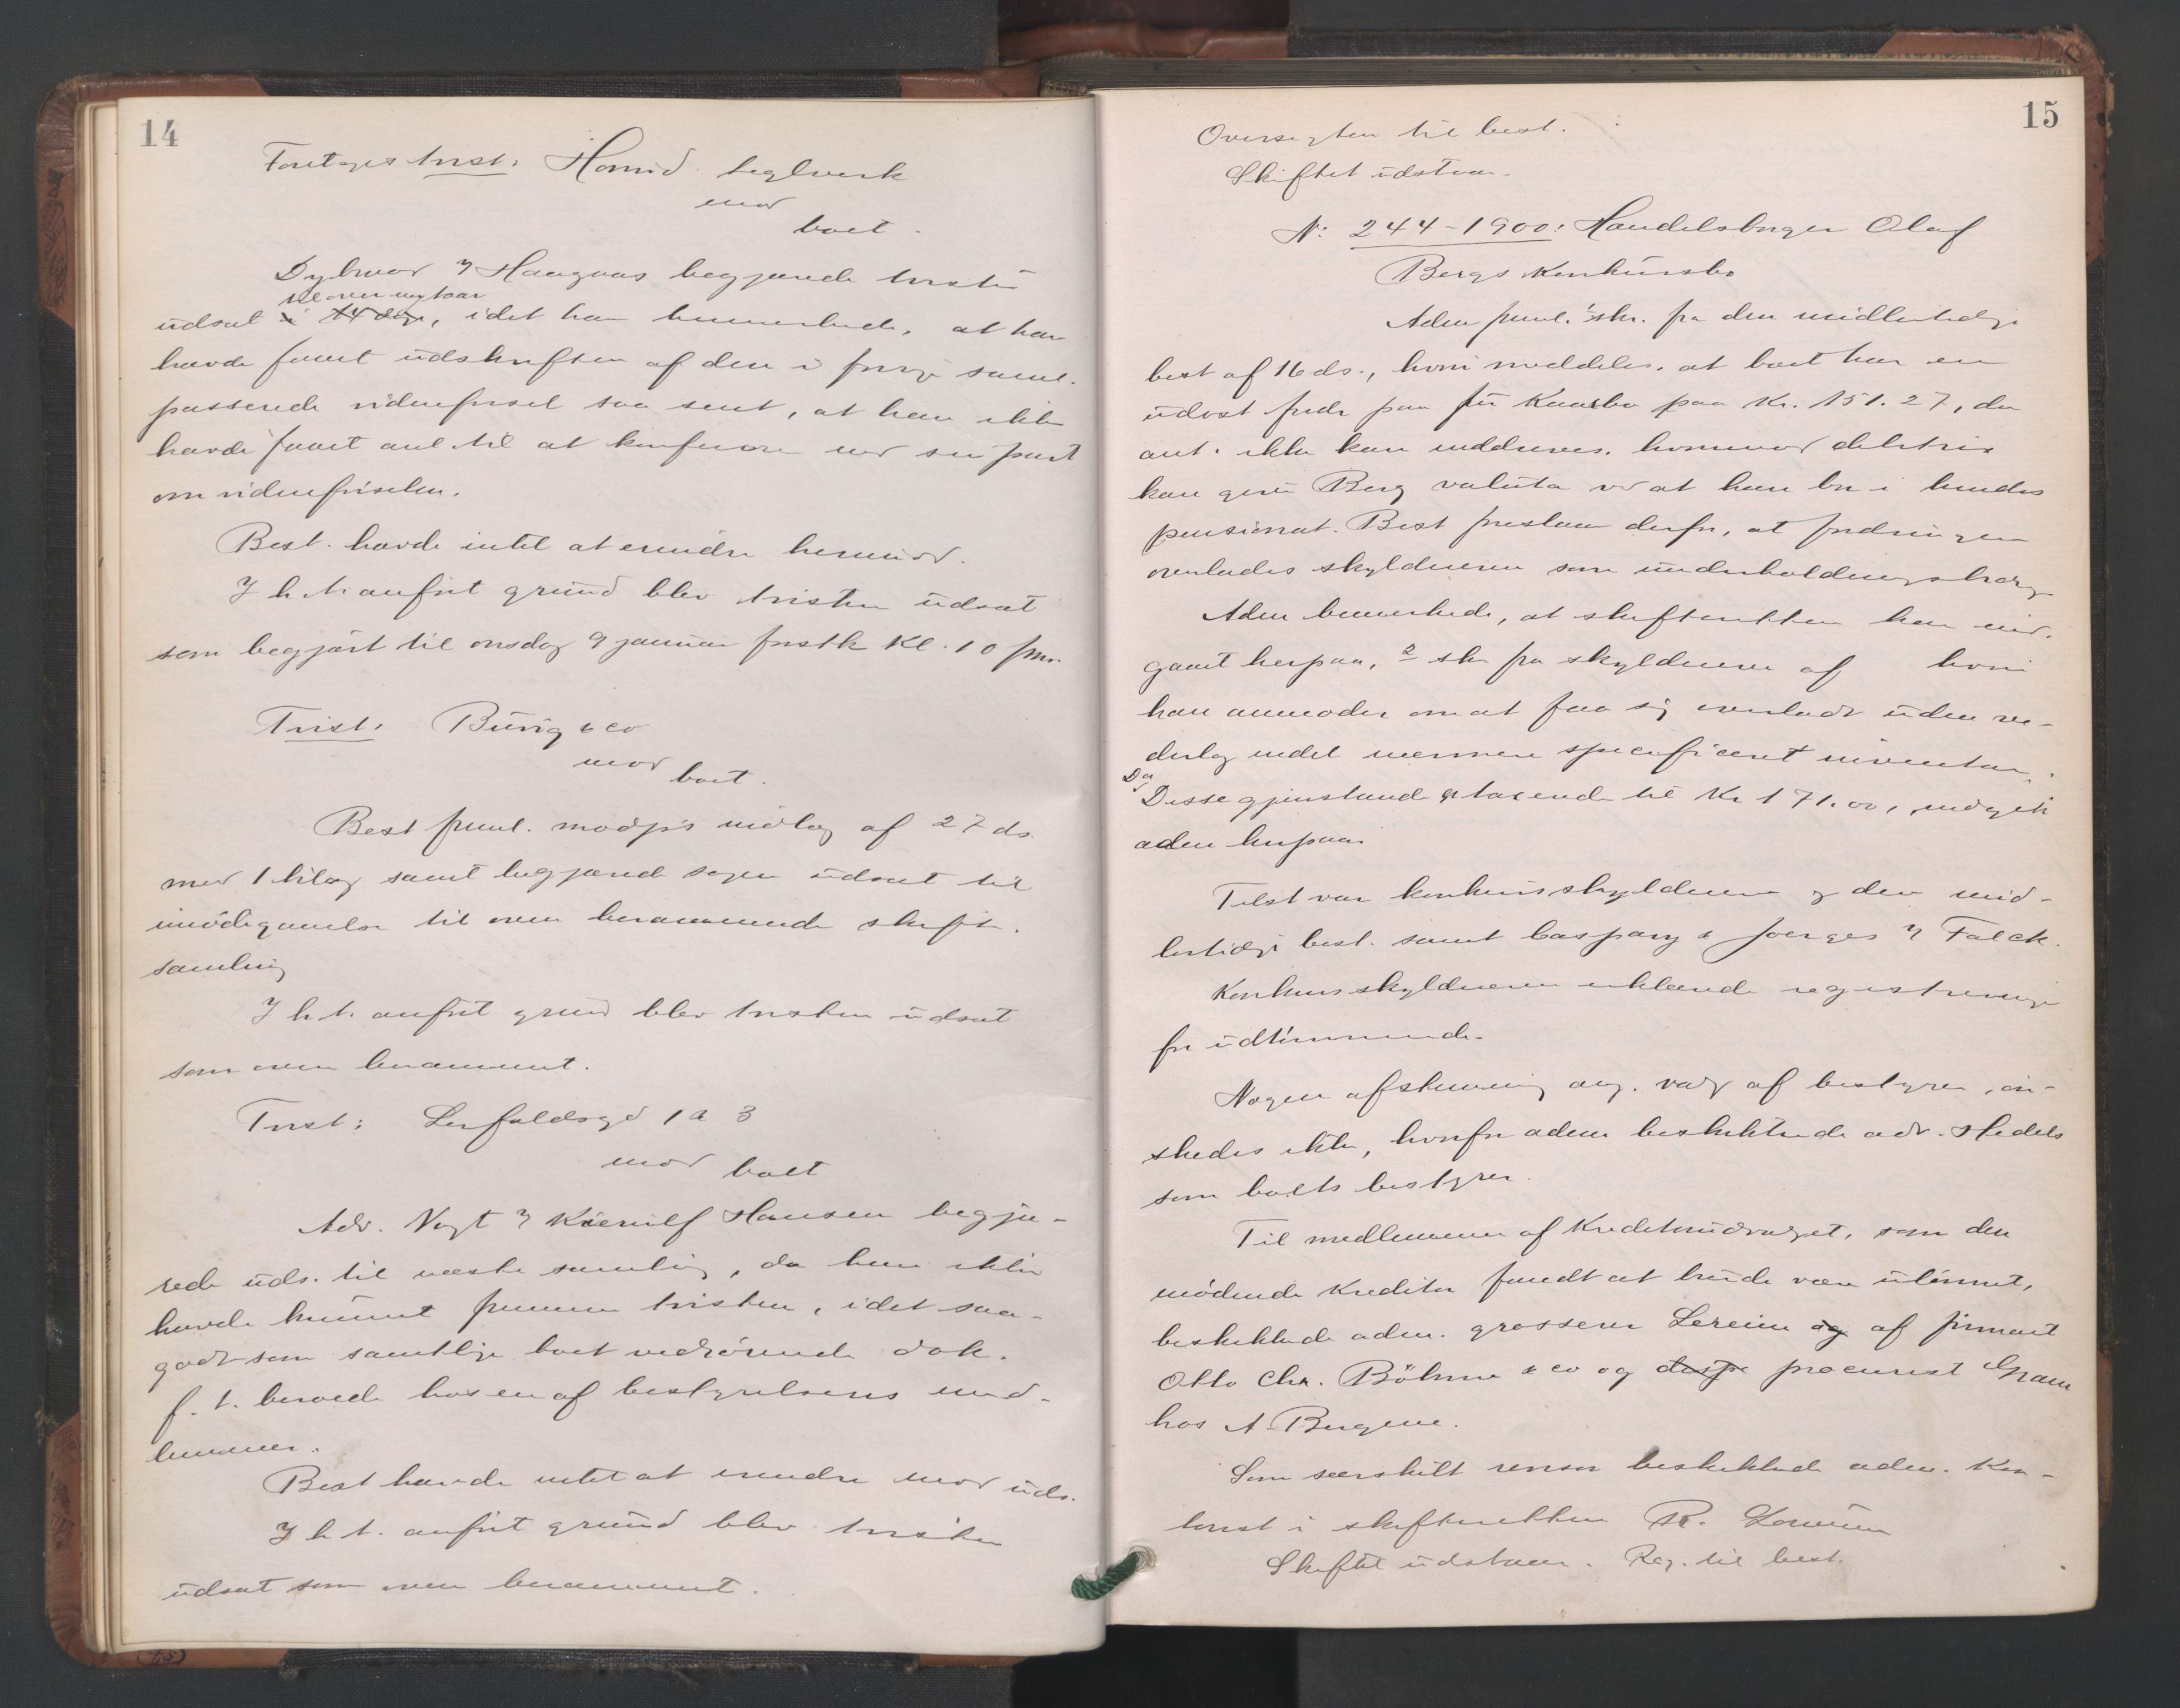 14
Foretoges tvist: Homid teglverk
mod
boet.
Dybwad ɔ: Haagaas begjærede tvisten
til over nytaar
udsat i 14 dage, idet han bemerkede, at han
havde faaet udskriften af den i forrige saml.
passerede vidneførsel saa sent, at han ikke
havde faaet anl. til at konferere med sin part
om vidneførselen.
Best. havde intet at erindre herimod.
I h. t. anført grund blev tvisten udsat
som begjært til onsdag 9 januar førstk. kl. 10 fm.
Tvist: Burig & co
mod
boet.
Best. freml. modp's indlæg af 27 ds.
med 1 bilag samt begjærede sagen udsat til
imødegaaelse til oven berammede skifte-
samling
I h. t. anført grund blev tvisten udsat
som oven berammet.
Tvist: Lerfaldsgd 1 a 3
mod boet
Adv. Vogt ɔ: Kierulf Hansen begjæ-
rede uds. til næste samling, da han ikke
havde kunnet fremme tvisten, idet saa-
godt som samtlige boet vedrørende dok.
f. t. beroede hos en af bestyrelsens med-
lemmer.
Best havde intet at erindre mod uds.
I h. t. anført grund blev tvisten
udsat som oven berammet.
15
Oversigten til best.
Skiftet udstaar.
N: 244-1900: Handelsborger Olaf
Bergs konkursbo
Adm freml. 1 skr. fra den midlertidige
best af 16 ds., hvori meddeles, at boet har en
udest fordr paa fru Kaarbo paa Kr. 151.27, der
ant. ikke kan inddrives. hvorimod debitrix
kan give Berg valuta ved at han bor i hendes
pensionat. Best foreslaar derfor, at fordringen
overlades skyldneren som underholdningsbidrag
Adm bemerkede, at skifteretten har ind-
gaaet herpaa, 2 skr fra skyldneren af hvori
han anmoder om at faa sig overladt uden ve-
derlag endel nærmere specificeret inventar.
Da
Disse gjenstande er taxerede til Kr 171.00, indgik
adm herpaa.
Tilst var konkursskyldneren og den mid-
lertidige best. samt Caspary & Joerges ɔ: Falck.
Konkursskyldneren erklærede registreringen
for udtømmende.
Nogen afstemning ang. valg af bestyrer, øn-
skedes ikke, hvorfor adm beskikkede adv. Hedels
som boets bestyrer.
Til medlemmer af kreditorudvalget, som den
mødende kreditor fandt at burde være ulønnet,
beskikkede adm. grosserer Lereim og af firmaet
Otto Chr. Böhme & co og disp procurist Gram
hos A Bergene.
Som særskilt revisor beskikkede adm. kon-
torist i skifteretten R. Lorentzen
Skiftet udstaar. Reg. til best.